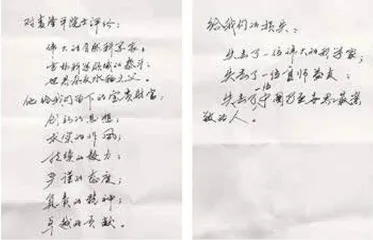 对袁隆平院士评价：
伟大的自然科学家，
世界杂交水稻之父。
他给我们留下的宝贵财富：
创新的思想；
求实的作风；
持续的毅力；
严谨的态度；
负责的精神；
卓越的贡献。
给我们的损失：
失去了一位伟大的科学家；
失去了一位良师益友；
一位
失去了中国乃至世界最
敬的人。